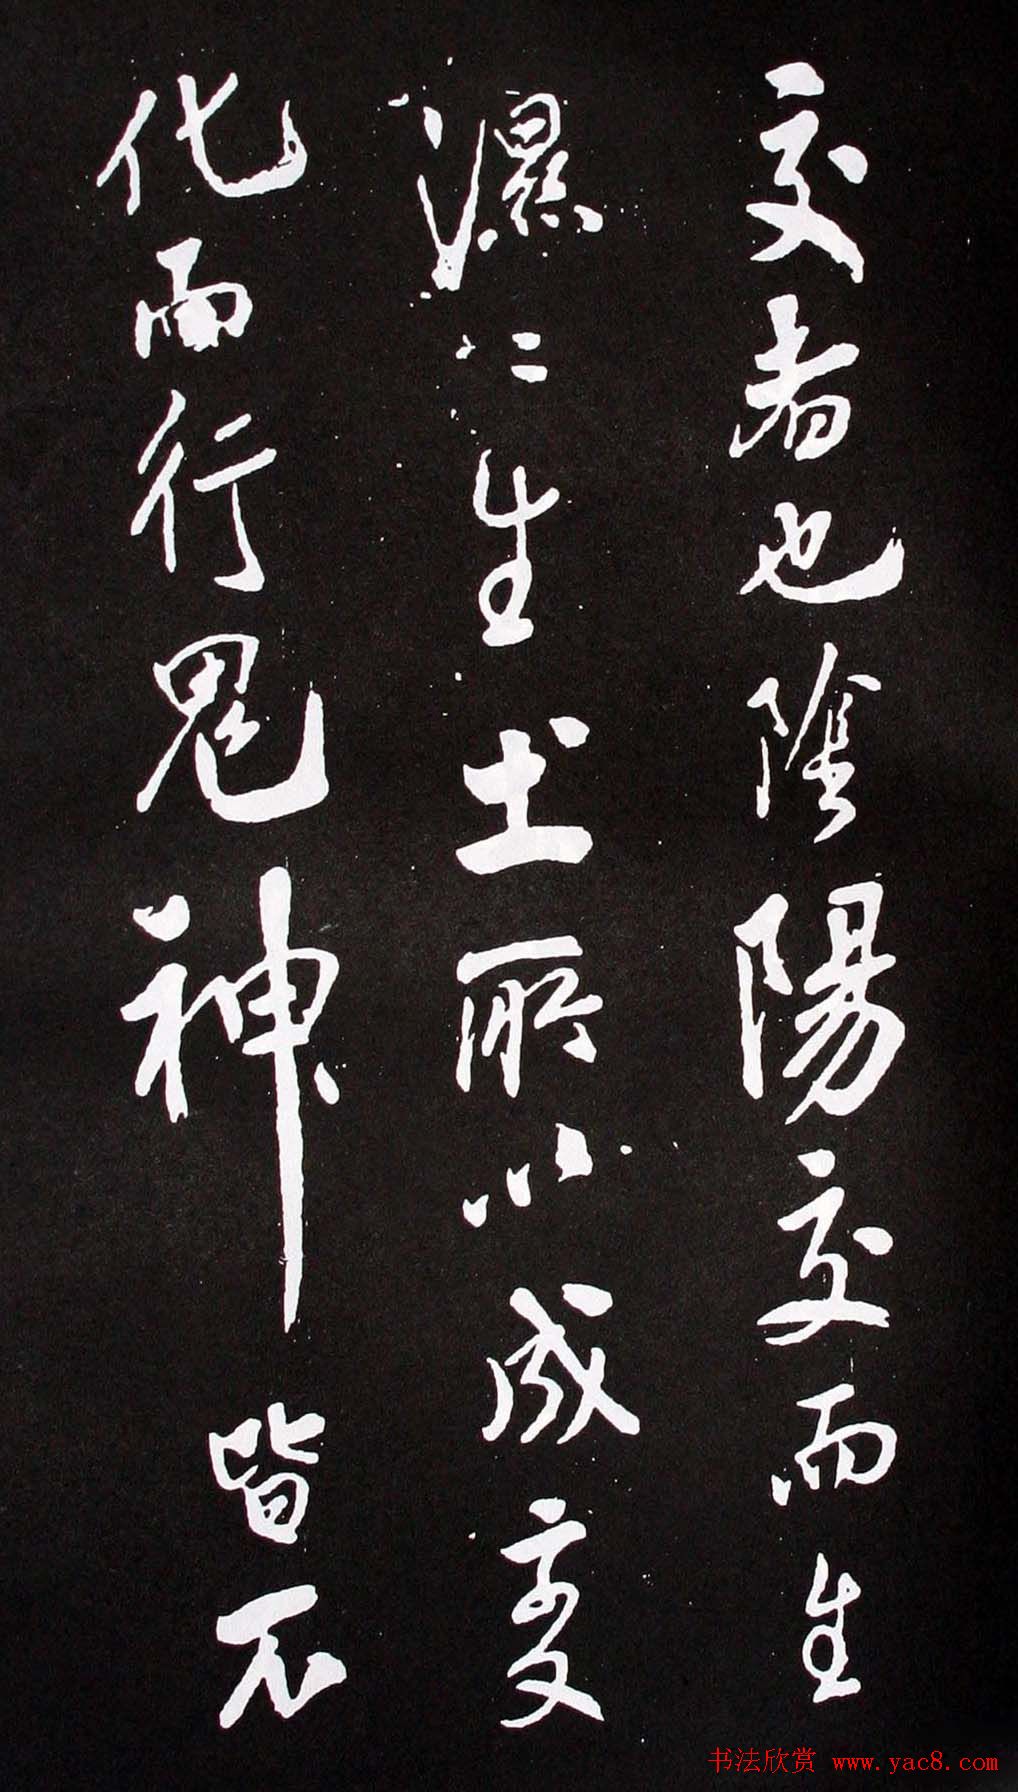 交者也陰陽交而生
濕二生土所以成变
化而行鬼神皆不
书法欣赏 www.yac8.com